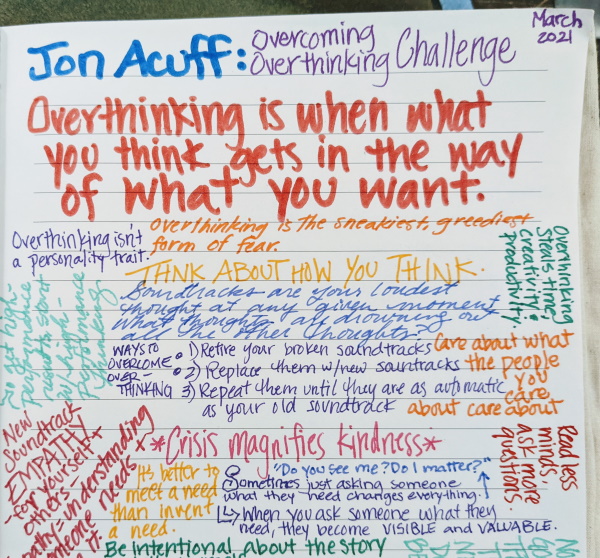 March
2021
Jon Acuff:
Overcoming
Overthinking
Challenge
Overthinking is when what
you think gets in the way
of what you want.
Overthinking is the sneakiest, greediest
form of fear.
Overthinking isn't
a personality trait.
THNK ABOUT HOW YOU THINK.
Soundtracks are your loudest
thought at any given moment
what thought is drowning out
all the other thoughts?
Overthinking
steals time,
creativity &
productivity.
To get high-
performance
results, start
w/ high-
performance
thinking
WAYS TO
OVERCOME
OVER-
THINKING
• 1) Retire your broken soundtracks
• 2) Replace them w/new sountracks
• 3) Repeat them until they are as automatic
as your old soundtrack
Care about what
the people
you
care
about care about
New
Soundtrack
EMPATHY
-for yourself+
others-
understanding
someone needs
it.
**Crisis magnifies kindness*
Read less
minds,
ask more
questions.
It's better to
meet a need
than invent
a need.
"Do you see me? Do I matter?"
Sometimes just asking someone
what they need changes everything.
When you ask someone what they
need, they become VISIBLE and VALUABLE.
Be Intentional about the story